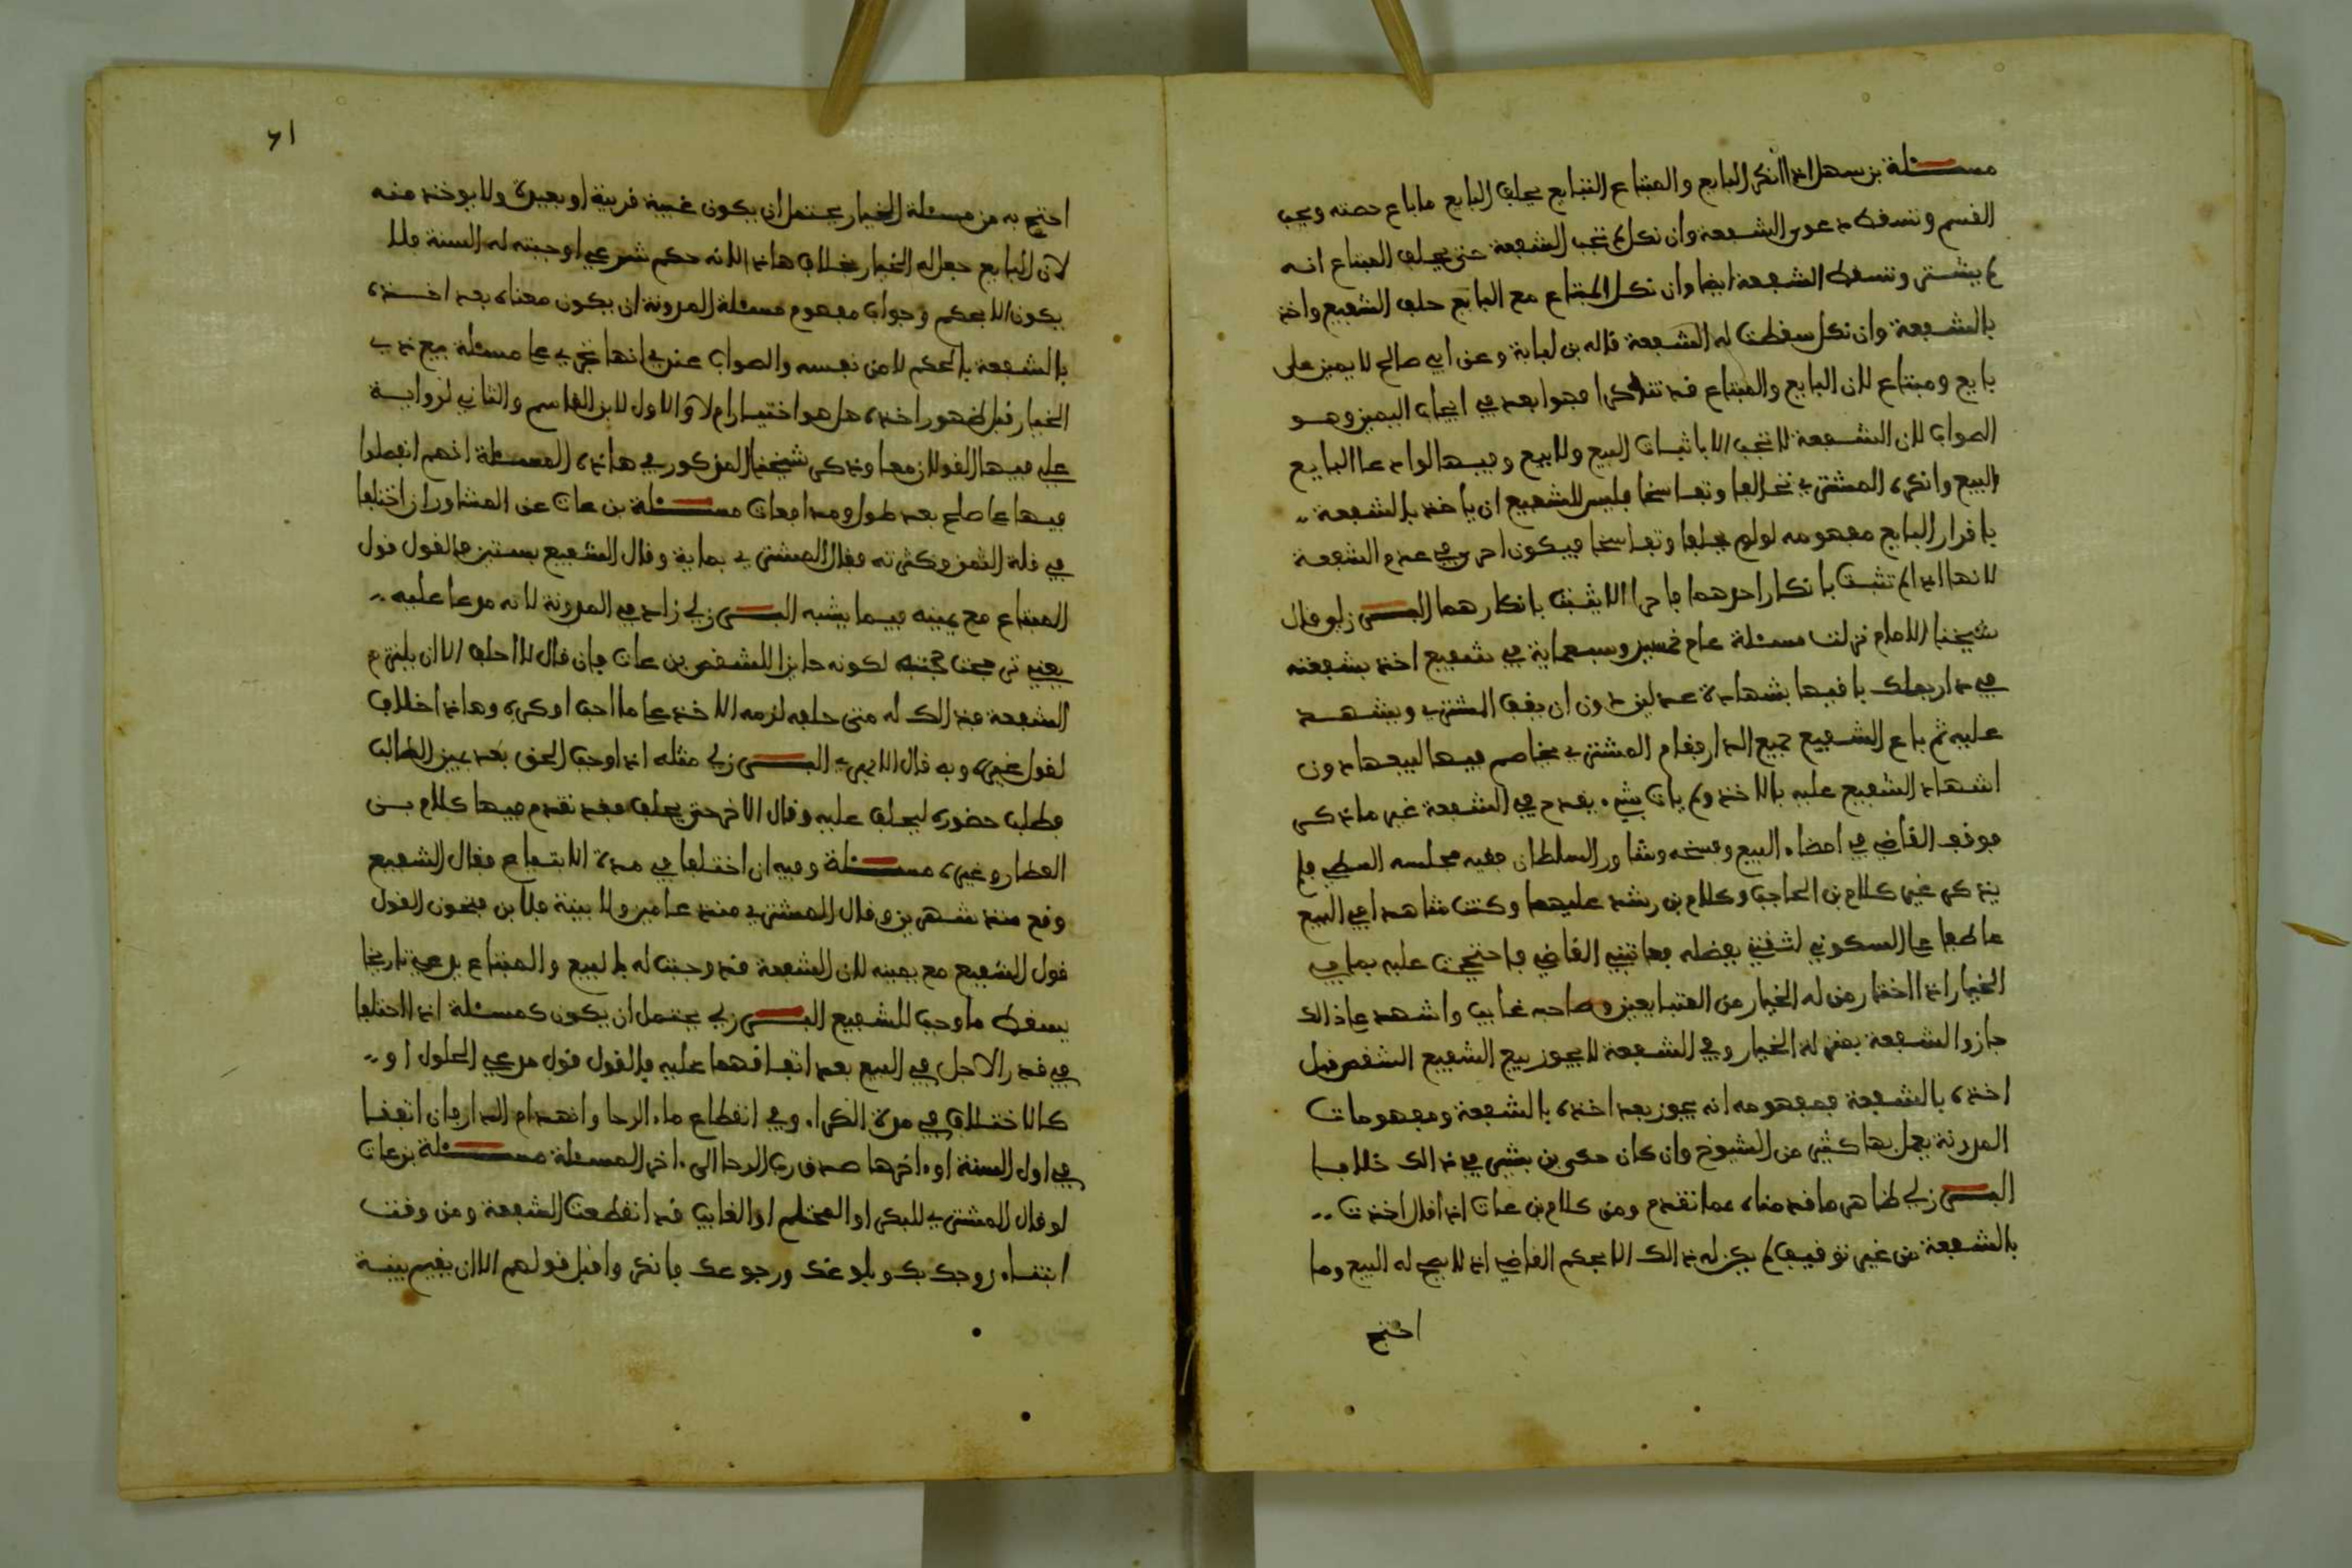 مسئلة بن سهل اذا انكر البايع والمبتاع التبايع يحلف البايع ما باع حصته ويجب
القسم وتسقط دعوى الشفعة وان نكل لم تجب الشفعة حتى يحلف المبتاع انه
لم يشتر وتسقط الشفعة ايضا وان نكل المبتاع مع البايع حلف الشفيع واخذ
بالشفعة وان نكل سقطت له الشفعة قاله بن لبابة وعن ابي صالح لا يمين على
بايع ومبتاع لان البايع والمبتاع قد تناكرا فجوابه في ايجاب اليمين وهو
الصواب لان الشفعة لا تجب الا باثبات البيع ولا بيع وفيها لو ادعا البايع
البيع وانكره المشتري تحالفا وتفاسخا فليس للشفيع ان ياخذ بالشفعة
باقرار البايع مفهومه لو لم يحلفا وتفاسخا فيكون احرى في عدم الشفعة
لانها اذا لم تثبت بانكار احدهما فاحرا الا يثبت بانكارهما البرزلي وقال
شيخنا الامام نزلت مسئلة عام خمسين وسبعماية في شفيع اخذ بشفعته
في دار بملك باقيها بشهادة عدلين دون ان يقف المشتري ويشهد
عليه ثم باع الشفيع جميع الدار فقام المشتري يخاصم فيها لبيعها دون
اشهاد الشفيع عليه بالاخذ ولم يات بشيء يقدح في الشفعة غير ما ذكر
فوقف القاضي في امضاء البيع وفسخه وشاور السلطان فقيه مجلسه السطي فلم
يذكر غير كلام بن الحاجب وكلام بن رشد عليهما وكنت شاهدا في البيع
عاطفا على السكوني لثقتي بفضله فعاتبني القاضي فاحتججت عليه بما في
الخيار اذا اختار من له الخيار من المتبايعين وصاحبه غايب واشهد على ذالك
جاز والشفعة بمنزلة الخيار وفي الشفعة لا يجوز بيع الشفيع الشقص قبل
اخذه بالشفعة فمفهومه انه يجوز بعد اخذه بالشفعة ومفهومات
المدونة يعمل بها كثير من الشيوخ وان كان حكى بن بشير في ذالك خلافا
البرزلي ظاهر ما قدمناه مما تقدم ومن كلام بن عات اذا قال اخذت
بالشفعة من غير توقيف لم يكن له ذالك الا بحكم القاضي اذ لا يصح له البيع وما
احتج
61
احتج به من مسئلة الخيار يحتمل ان يكون غيبة قريبة او بعيدة ولا يوخذ منه
لان البايع جعل له الخيار بخلاف هاذا لانه حكم شرعي اوجبته له السنة فلا
يكون الا بحكم وجواب مفهوم مسئلة المدونة ان يكون معناه بعد اخذه
بالشفعة بالحكم لا من نفسه والصواب عندي انها تجري على مسئلة بيع ذي
الخيار قبل ظهور اخذه هل هو اختيار ام لا والاول لابن القاسم والثاني لرواية
علي فيها القولان معا وذكر شيخنا المذكور في هاذه المسئلة انهم انفصلوا
فيها على صلح بعد طول ومدافعات مسئلة بن عات عن المشاور ان اختلفا
في قلة الثمن وكثرته فقال المشتري بماية وقال الشفيع بستين فالقول قول
المبتاع مع يمينه فيما يشبه البرزلي زاد في المدونة لانه مدعا عليه
يعني ترجحت حجته لكونه حايزا للشقص بن عات فان قال لا احلف الا ان يلتزم
الشفعة فذالك له متى حلف لزمه الاخذ على ما احب او كره وهاذا خلاف
لقول غيره وبه قال الابهري البرزلي مثله اذا وجب الحق بعد يمين الطالب
فطلب حضوره ليحلف عليه وقال الاخر حتى يحلف فقد تقدم فيها كلام بن
العطار وغيره مسئلة وفيه ان اختلفا في مدة الابتياع فقال الشفيع
وقع منذ شهرين وقال المشتري منذ عامين ولا بينة فلابن فتحون القول
قول الشفيع مع يمينه لان الشفعة قد وجبت له بالبيع والمبتاع يدعي تاريخا
يسقط ما وجب للشفيع البرزلي يحتمل ان يكون كمسئلة اذا اختلفا
في قدر الاجل في البيع بعد اتفاقهما عليه فالقول قول مدعي الحلول او
كالاختلاف في مدة الكراء وفي انقطاع ماء الرحا وانهدام الدار فان اتفقا
في اول السنة او اخرها صدق رب الرحا الى اخر المسئلة مسئلة بن عات
لو قال المشتري للبكر او المحتلم او الغايب قد انقطعت الشفعة ومن وقت
ابتناء زوجك بك وبلوغك ورجوعك فانكروا قبل قولهم الا ان يقيم بينة